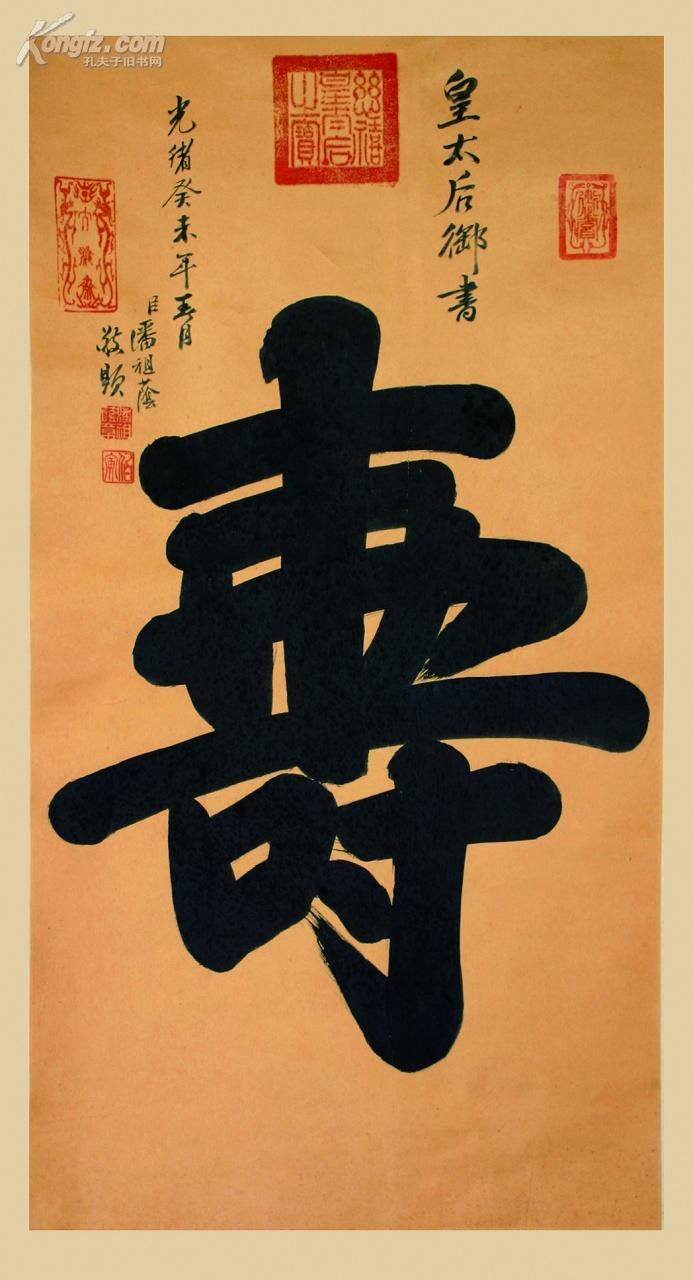 Kongfz.com
孔夫子旧书网
皇太后御書
慈禧
皇太后
之寶
壽
光緒癸未年月
臣潘祖蔭
敬題
伯寅